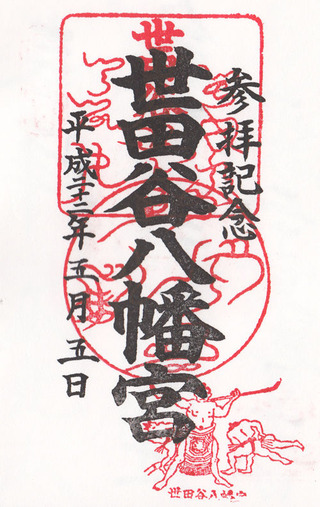 参拝記念
世田谷八幡宮
平成二十二年五月五日
世田谷八幡宮